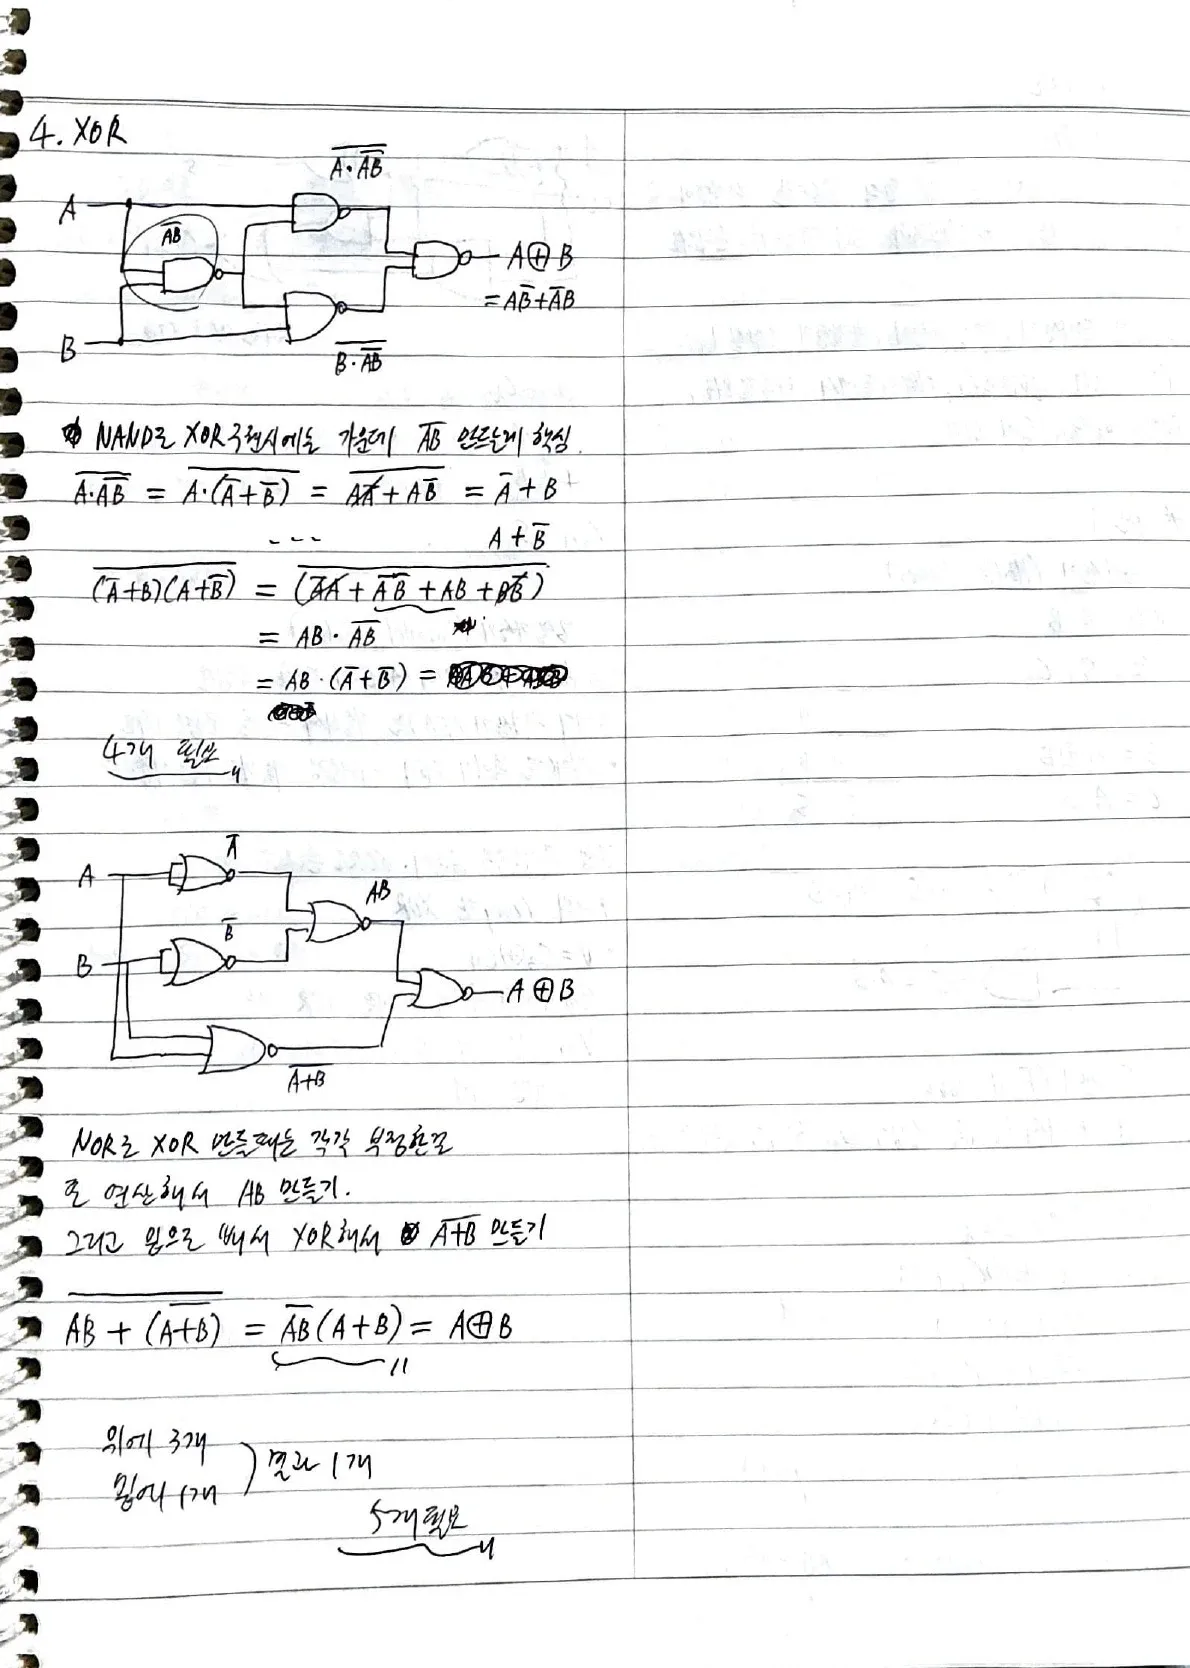 4. XOR
A·A̅B̅ (overline)
A
A̅B̅
A⊕B
=AB̅+A̅B
B
B·A̅B̅ (overline)
NAND로 XOR구현시에는 가운데 A̅B̅ 만드는게 핵심.
\overline{A·\overline{AB}} = \overline{A·(A̅+B̅)} = \overline{AA̅+AB̅} = A̅+B
--- A+B̅
\overline{(A̅+B)(A+B̅)} = \overline{(A̅A+\overline{AB}+AB+BB̅)}
= AB·\overline{AB}
= AB·(A̅+B̅) =
4개 필요
A̅
A
AB
B̅
B
A⊕B
\overline{A+B}
NOR로 XOR 만들때는 각각 부정한걸
로 연산해서 AB 만들기.
그리고 밑으로 빼서 XOR해서 \overline{A+B} 만들기
\overline{AB+(\overline{A+B})} = \overline{AB}(A+B) = A⊕B
위에 3개
밑에 1개
결과 1개
5개 필요